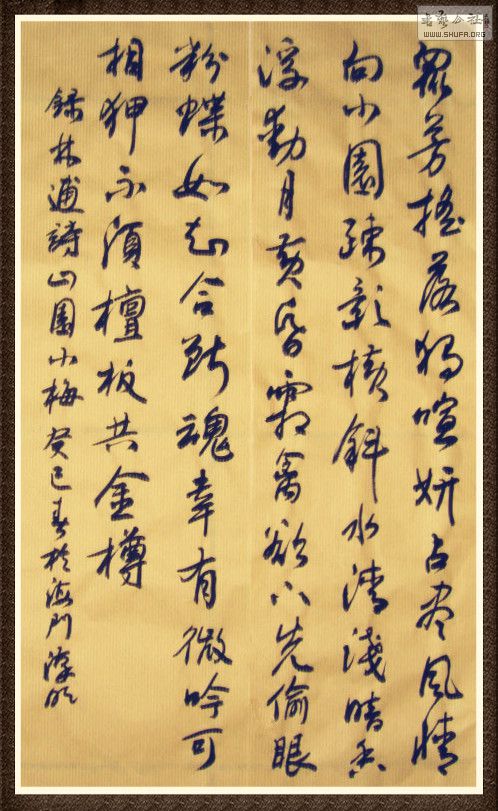 書藝公社
WWW.SHUFA.ORG
眾芳搖落獨喧妍占盡風情
向小園疎影橫斜水清淺暗香
浮動月黃昏霜禽欲下先偷眼
粉蝶如知合斷魂幸有微吟可
相狎不須檀板共金樽
錄林逋詩山園小梅癸巳春於海門